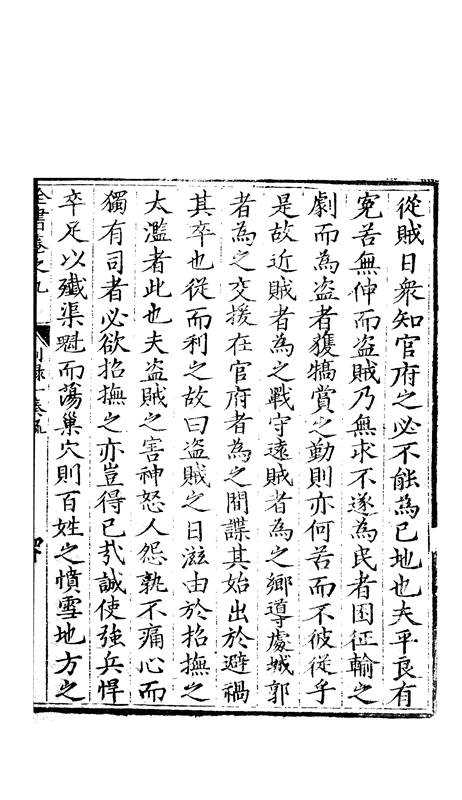 從賊日衆知官府之必不能為已地也夫平良有
寃苦無伸而盗賊乃無求不遂為民者困征輸之
劇而為盗者獲犒賞之勤則亦何苦而不彼從乎
是故近賊者為之戰守遠賊者為之鄉導處城郭
者為之交援在官府者為之間諜其始出於避禍
其卒也從而利之故曰盗賊之日滋由於招撫之
太濫者此也夫盗賊之害神怒人怨孰不痛心而
獨有司者必欲招撫之亦豈得已㢤誠使強兵悍
卒足以殲渠魁而蕩巢穴則百姓之憤雪地方之
全書卷之九 別錄一奏疏